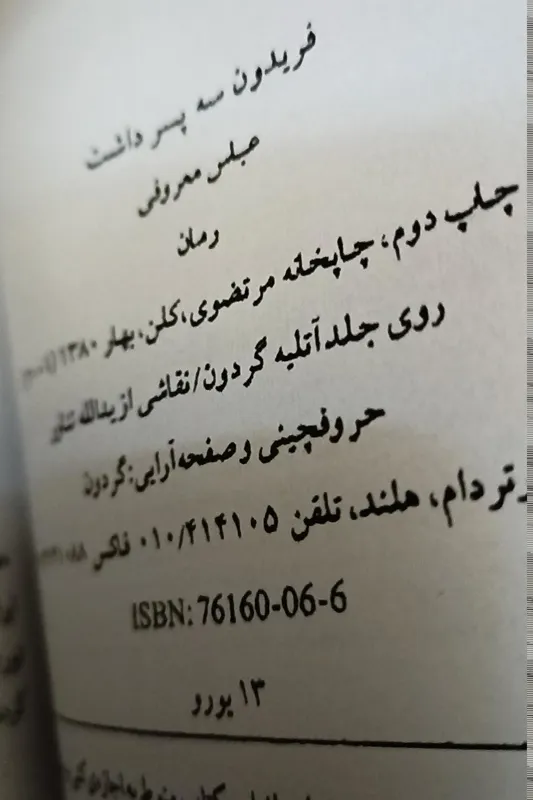 فریدون سه پسر داشت
عباس معروفی
رمان
چاپ دوم، چاپخانه مرتضوی، کلن، بهار ۱۳۸۰
روی جلد آتلیه گردون/نقاشی از یدالله
حروفچینی و صفحه‌آرایی: گردون
هلند، تلفن ۰۱۰/۴۱۴۱۰۵ فاکس
ISBN: 76160-06-6
۱۳ یورو